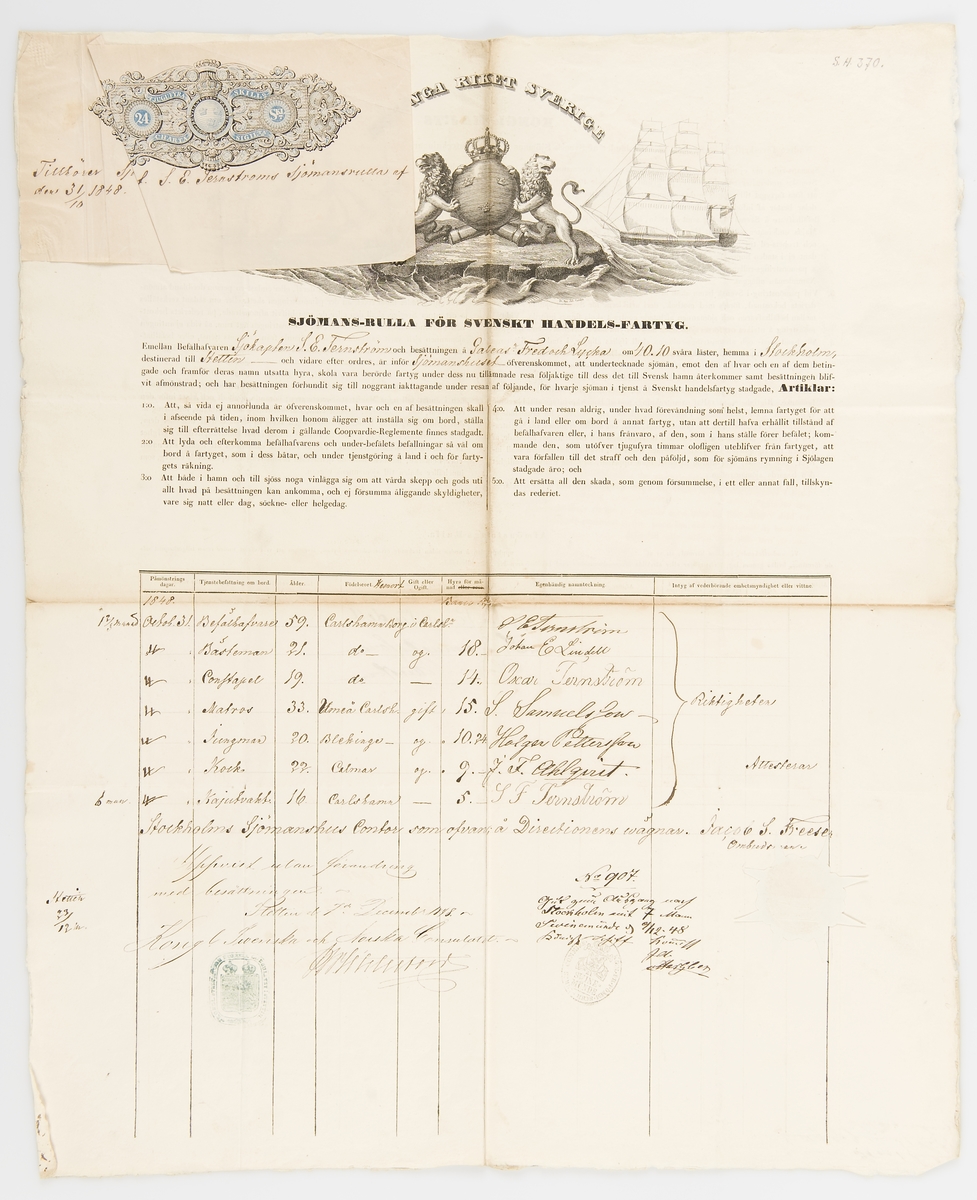 S.H 370.
NGA RIKET SVERIGE
24 SKILL 24
CHARTÆ SIGILL
Tillhörer S. E. Ternströms Sjömansrulla af
den 31/10 1848.
SJÖMANS-RULLA FÖR SVENSKT HANDELS-FARTYG.
Emellan Befälhafvaren Sjökapten S. E. Ternström och besättningen å Galeas Fred och Lycka om 40.10 svåra läster, hemma i Stockholm,
destinerad till Stettin och vidare efter ordres, är inför Sjömanshuset öfverenskommet, att undertecknade sjömän, emot den af hvar och en af dem betin-
gade och framför deras namn utsatta hyra, skola vara berörde fartyg under dess nu tillämnade resa följaktige till dess det till Svensk hamn återkommer samt besättningen blif-
vit afmönstrad; och har besättningen förbundit sig till noggrant iakttagande under resan af följande, för hvarje sjöman i tjenst å Svenskt handelsfartyg stadgade, Artiklar:
1:o. Att, så vida ej annorlunda är öfverenskommet, hvar och en af besättningen skall
i afseende på tiden, inom hvilken honom åligger att inställa sig om bord, ställa
sig till efterrättelse hvad derom i gällande Coopvardie-Reglemente finnes stadgadt.
2:o Att lyda och efterkomma befälhafvarens och under-befälets befallningar så väl om
bord å fartyget, som i dess båtar, och under tjenstgöring å land i och för farty-
gets räkning.
3:o Att både i hamn och till sjöss noga vinlägga sig om att vårda skepp och gods uti
allt hvad på besättningen kan ankomma, och ej försumma åliggande skyldigheter,
vare sig natt eller dag, söckne- eller helgedag.
4:o Att under resan aldrig, under hvad förevändning som helst, lemna fartyget för att
gå i land eller om bord å annat fartyg, utan att dertill hafva erhållit tillstånd af
befälhafvaren eller, i hans frånvaro, af den, som i hans ställe förer befälet; kom-
mande den, som utöfver tjugufyra timmar olofligen uteblifver från fartyget, att
vara förfallen till det straff och den påföljd, som för sjömäns rymning i Sjölagen
stadgade äro; och
5:o Att ersätta all den skada, som genom försummelse, i ett eller annat fall, tillskyn-
das rederiet.
Påmönstrings dagar. Tjenstebefattning om bord. Ålder. Födelseort Hemort Gift eller Ogift. Hyra för må- nad Egenhändig namnteckning Intyg af vederbörande embetsmyndighet eller vittne
1848. Banco
Octob. 31. Befälhafvare 59. Carlshamn S E Ternström
" Bästeman 21. do og. 18. Johan E Lindell
" Constapel 19. do — 14. Oscar Ternström
" Matros 33. Umeå Carlsh. gift 15. S. Samuelsson Riktigheten
" Jungman 20. Blekinge og. 10.24 Holger Pettersson
" Kock 22. Calmar og. 9. J. F. Ahlqvist. Attesterar
" Kajutvakt 16. Carlshamn — 5. S F Ternström
Stockholms Sjömanshus Contor som ofvan; å Directionens wägnar. Jacob S. Freese
Ombudsman
Uppvist utan förändring
med besättningen
Stettin d. December 1848
Kongl Svenska och Norska Consulatet
No 907.
Stockholm mit 7 Mann
Swinemünde
Stettin
23/12